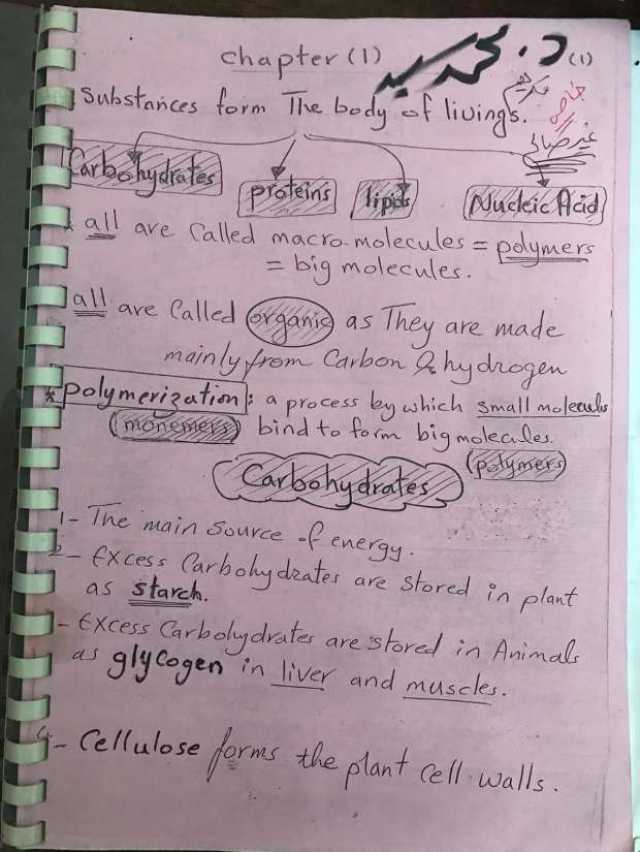 chapter (1)
(1)
Substances form The body of livings.
Carbohydrates proteins lipids Nucleic Acid
* all are Called macro-molecules = polymers
= big molecules.
all are Called organic as They are made
mainly from Carbon & hydrogen
* polymerization: a process by which small molecules
(monemers) bind to form big molecules.
(polymers)
Carbohydrates
1- The main source of energy.
2- Excess Carbohydrates are stored in plant
as starch.
- Excess Carbohydrates are stored in Animals
as glycogen in liver and muscles.
4- Cellulose forms the plant cell walls.